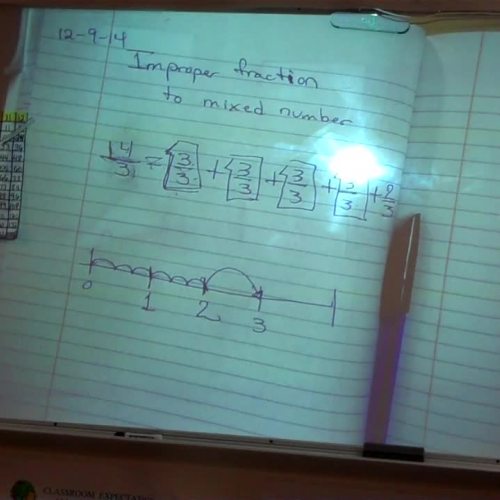 12-9-14
Improper fraction
to mixed number
14/3 = 3/3 + 3/3 + 3/3 + 3/3 + 2/3
0 1 2 3
CLASSROOM EXPECTATIONS